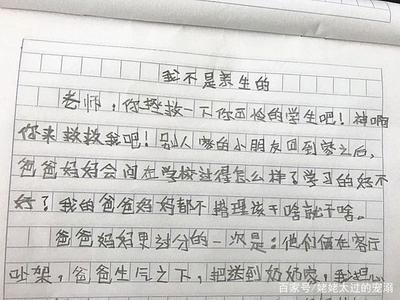 我不是亲生的
老师，你拯救一下你可怜的学生吧！神啊
你来救救我吧！别人家的小朋友回到家之后，
爸爸妈妈会问在学校过得怎么样了学习的好不
好？我的爸爸妈妈都不搭理该干啥就干啥。
爸爸妈妈更过分的一次是：他们俩在客厅
吵架，爸爸生气之下，把送到奶奶家，我
百家号/姥姥太过的宠溺